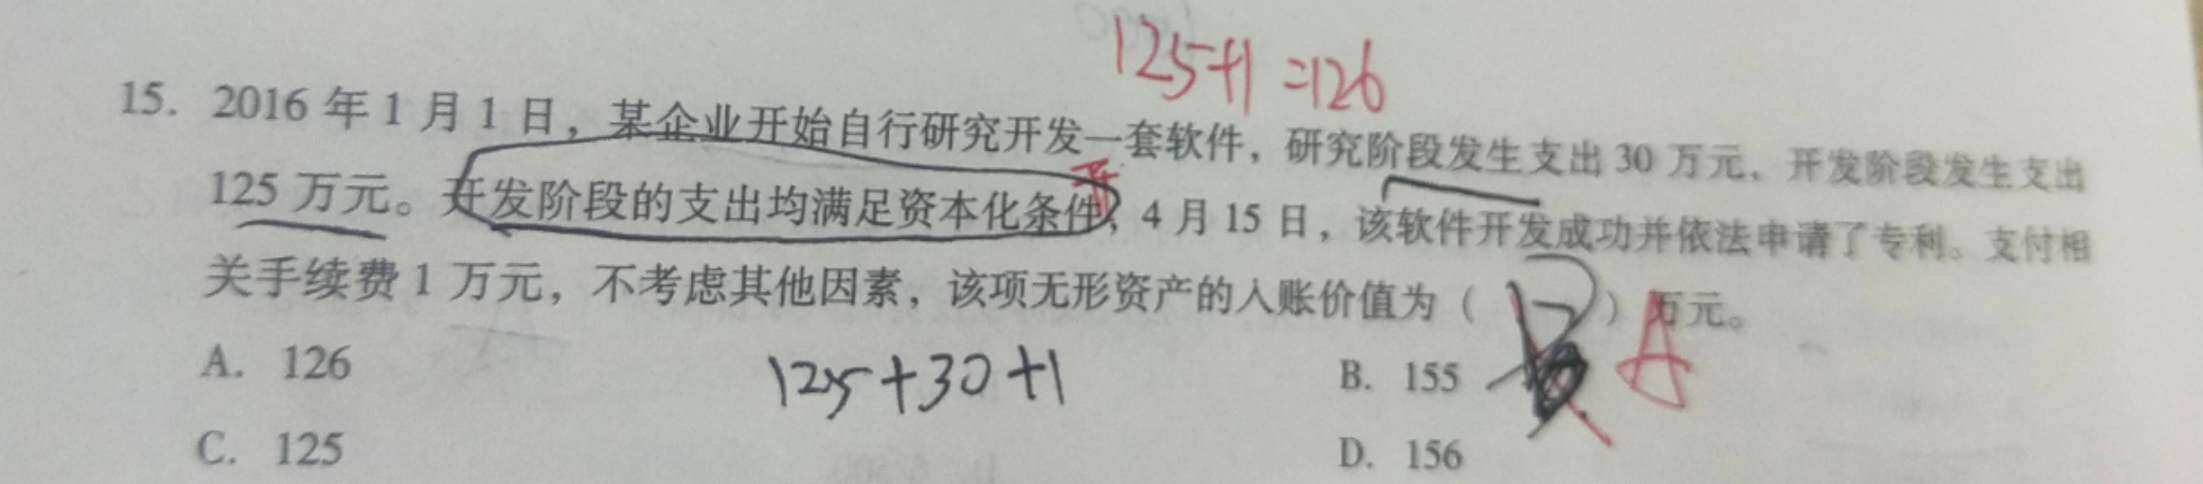 125+1=126
15. 2016 年 1 月 1 日，某企业开始自行研究开发一套软件，研究阶段发生支出 30 万元、开发阶段发生支出
125 万元。开发阶段的支出均满足资本化条件，4 月 15 日，该软件开发成功并依法申请了专利。支付相
关手续费 1 万元，不考虑其他因素，该项无形资产的入账价值为（ ）万元。
A
A. 126
B. 155
125+30+1
C. 125
D. 156